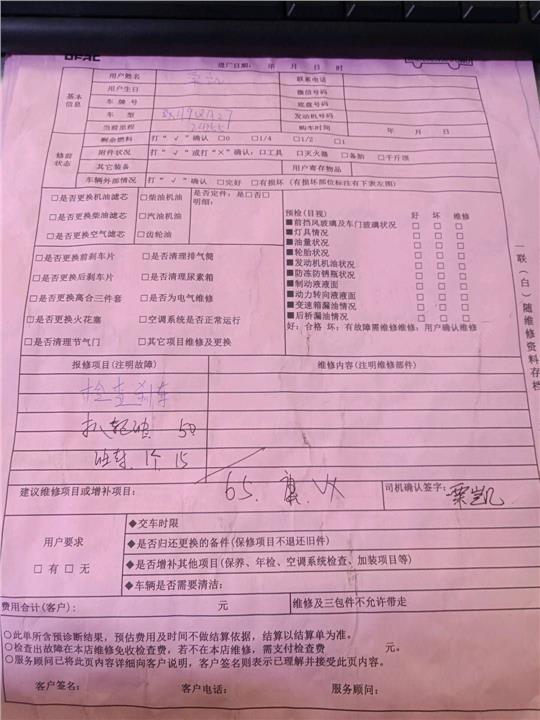 DFAC
进厂日期: 年 月 日 时
基本信息
用户姓名 联系电话
用户生日 微信号码
车牌号 底盘号码
车型 发动机号码
当前里程 购车时间 年 月 日
修前状态
剩余燃料 打“√”确认 □0 □1/4 □1/2 □1
附件状况 打“√”或打“×”确认:□工具 □灭火器 □备胎 □千斤顶
其它装备 用户寄存物品
车辆外部情况 打“√”确认 □完好 □有损坏 (有损坏部位标注有下表左图)
□是否更换机油滤芯 □柴油机油 是否定件:是□否□
□是否更换柴油滤芯 □汽油机油 明细:
□是否更换空气滤芯 □齿轮油
□是否更换前刹车片 □是否清理排气筒
□是否更换后刹车片 □是否清理尿素箱
□是否更换离合三件套 □是否为电气维修
□是否更换火花塞 □空调系统是否正常运行
□是否清理节气门 □其它项目维修及更换
预检(目视) 好 坏 维修
■前挡风玻璃及车门玻璃状况 □ □ □
■灯具情况 □ □ □
■油量状况 □ □ □
■轮胎状况 □ □ □
■发动机机油状况 □ □ □
■防冻防锈瓶状况 □ □ □
■制动液液面 □ □ □
■动力转向液液面 □ □ □
■变速箱漏油情况 □ □ □
■后桥漏油情况 □ □ □
好:合格 坏:有故障需维修维修:用户确认维修
一联(白)随维修资料存档
报修项目(注明故障) 维修内容(注明维修部件)
检查刹车
扒轮 50
1个 15
建议维修项目或增补项目: 65. 司机确认签字: 栗凯
用户要求
□有□无
◆交车时限
◆是否归还更换的备件(保修项目不退还旧件)
◆是否增补其他项目(保养、年检、空调系统检查、加装项目等)
◆车辆是否需要清洁:
费用合计(客户): 元 维修及三包件不允许带走
○此单所含预诊断结果,预估费用及时间不做结算依据,结算以结算单为准。
○检查出故障在本店维修免收检查费,若不在本店维修,需支付检查费 元。
○服务顾问已将此页内容详细向客户说明,客户签名则表示已理解并接受此页内容。
客户签名: 客户电话: 服务顾问: